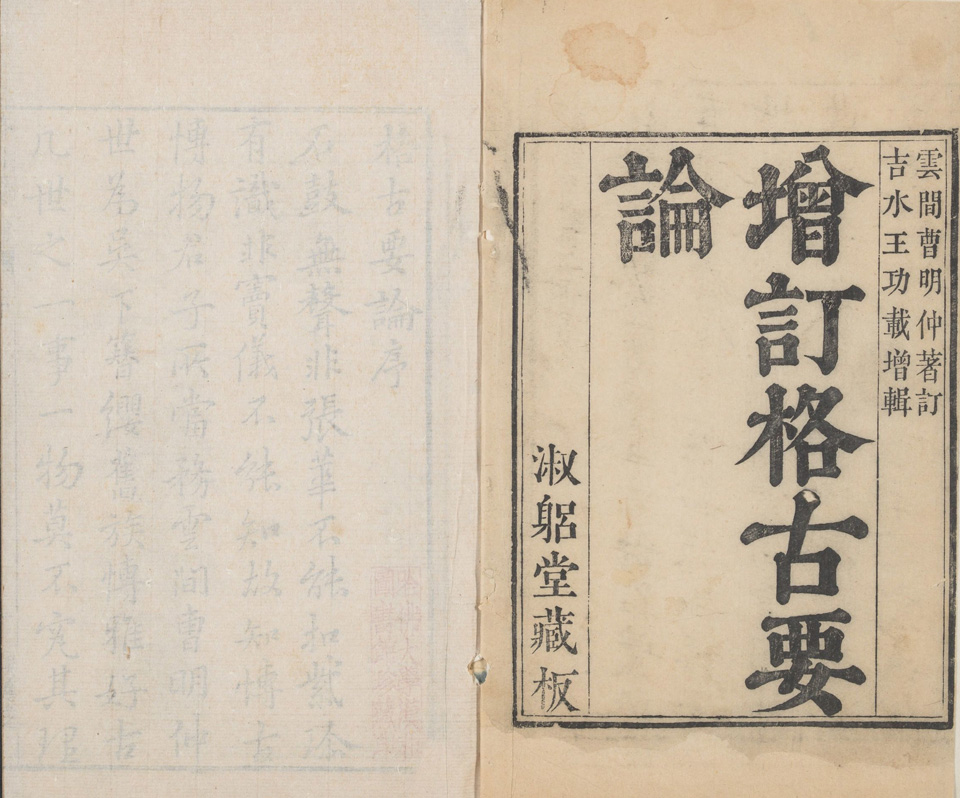 雲間曹明仲著訂
吉水王功載增輯
增訂格古要
論
淑躳堂藏板
格古要論序
石鼓無聲非張華不能知紫珍
有識非竇儀不能知故知博古
博物君子所當務雲間曹明仲
世為吳下簪纓舊族博雅好古
凡世之一事一物莫不究其理